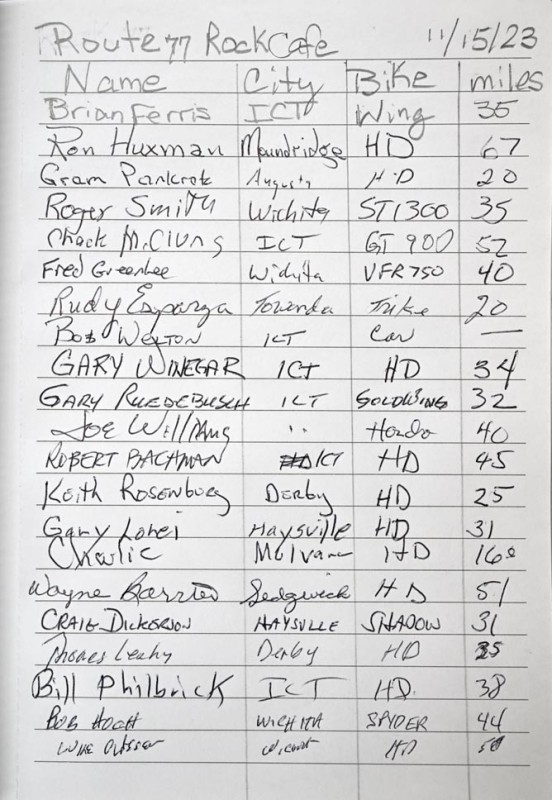 Route 77 Rock Cafe 11/15/23
Name City Bike miles
Brian Ferris ICT Wing 35
Ron Huxman Moundridge HD 67
Gram Pankratz Augusta HD 20
Roger Smith Wichita ST1300 35
Chack McClung ICT GT 900 52
Fred Greenlee Widhita VFR 750 40
Rudy Esparza Towanda Trike 20
Bob Welton ICT Car —
GARY WINEGAR ICT HD 34
GARY RUEDEBUSCH ICT GOLDWING 32
Joe Williams " Honda 40
ROBERT BACHMAN ICT HD 45
Keith Rosenburg Derby HD 25
Gary Lohei Haysville HD 31
Charlie Mulvane HD
Wayne Sedgwick HD 51
CRAIG DICKERSON HAYSVILLE SHADOW 31
Thomas Leahy Derby HD 35
Bill Philbrick ICT HD 38
BOB HOCH WICHITA SPYDER 44
HD